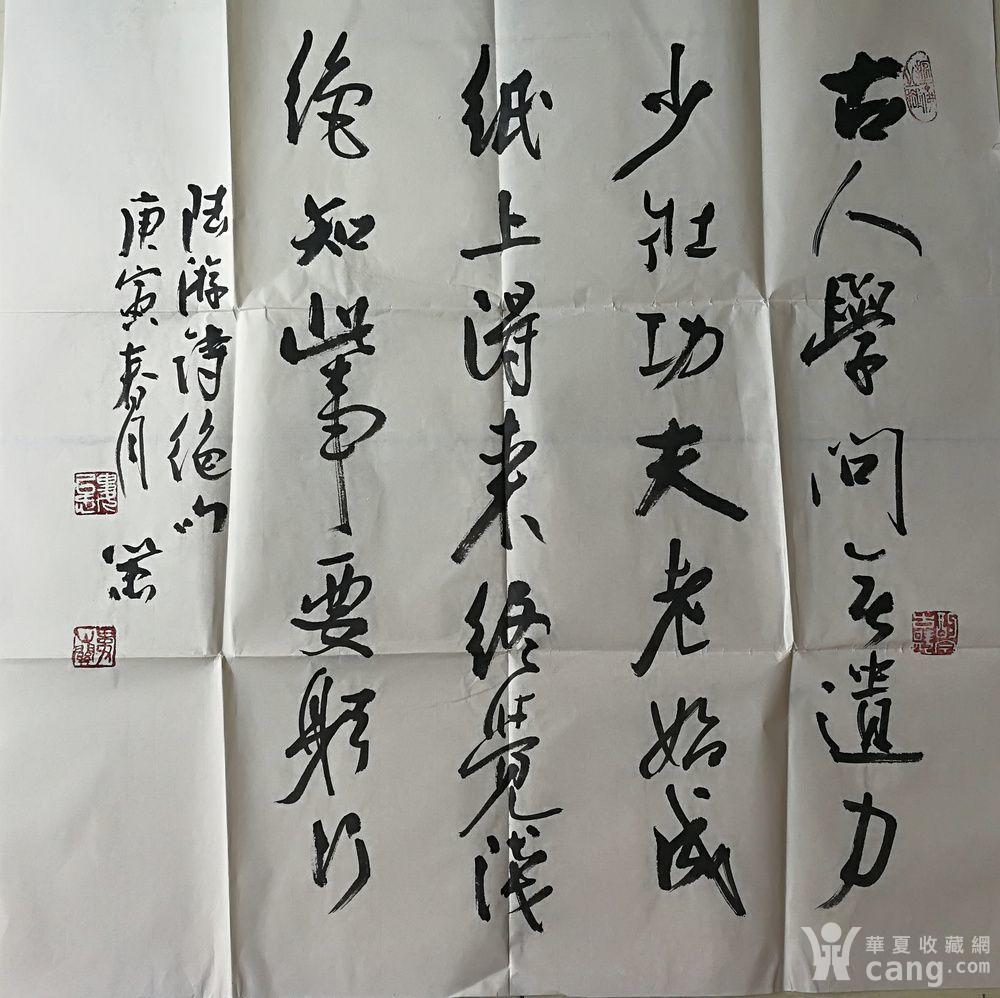 古人學問無遺力
少壯功夫老始成
紙上得来终覺淺
绝知此事要躬行
陆游诗绝句
庚寅春月
華夏收藏網
cang.com